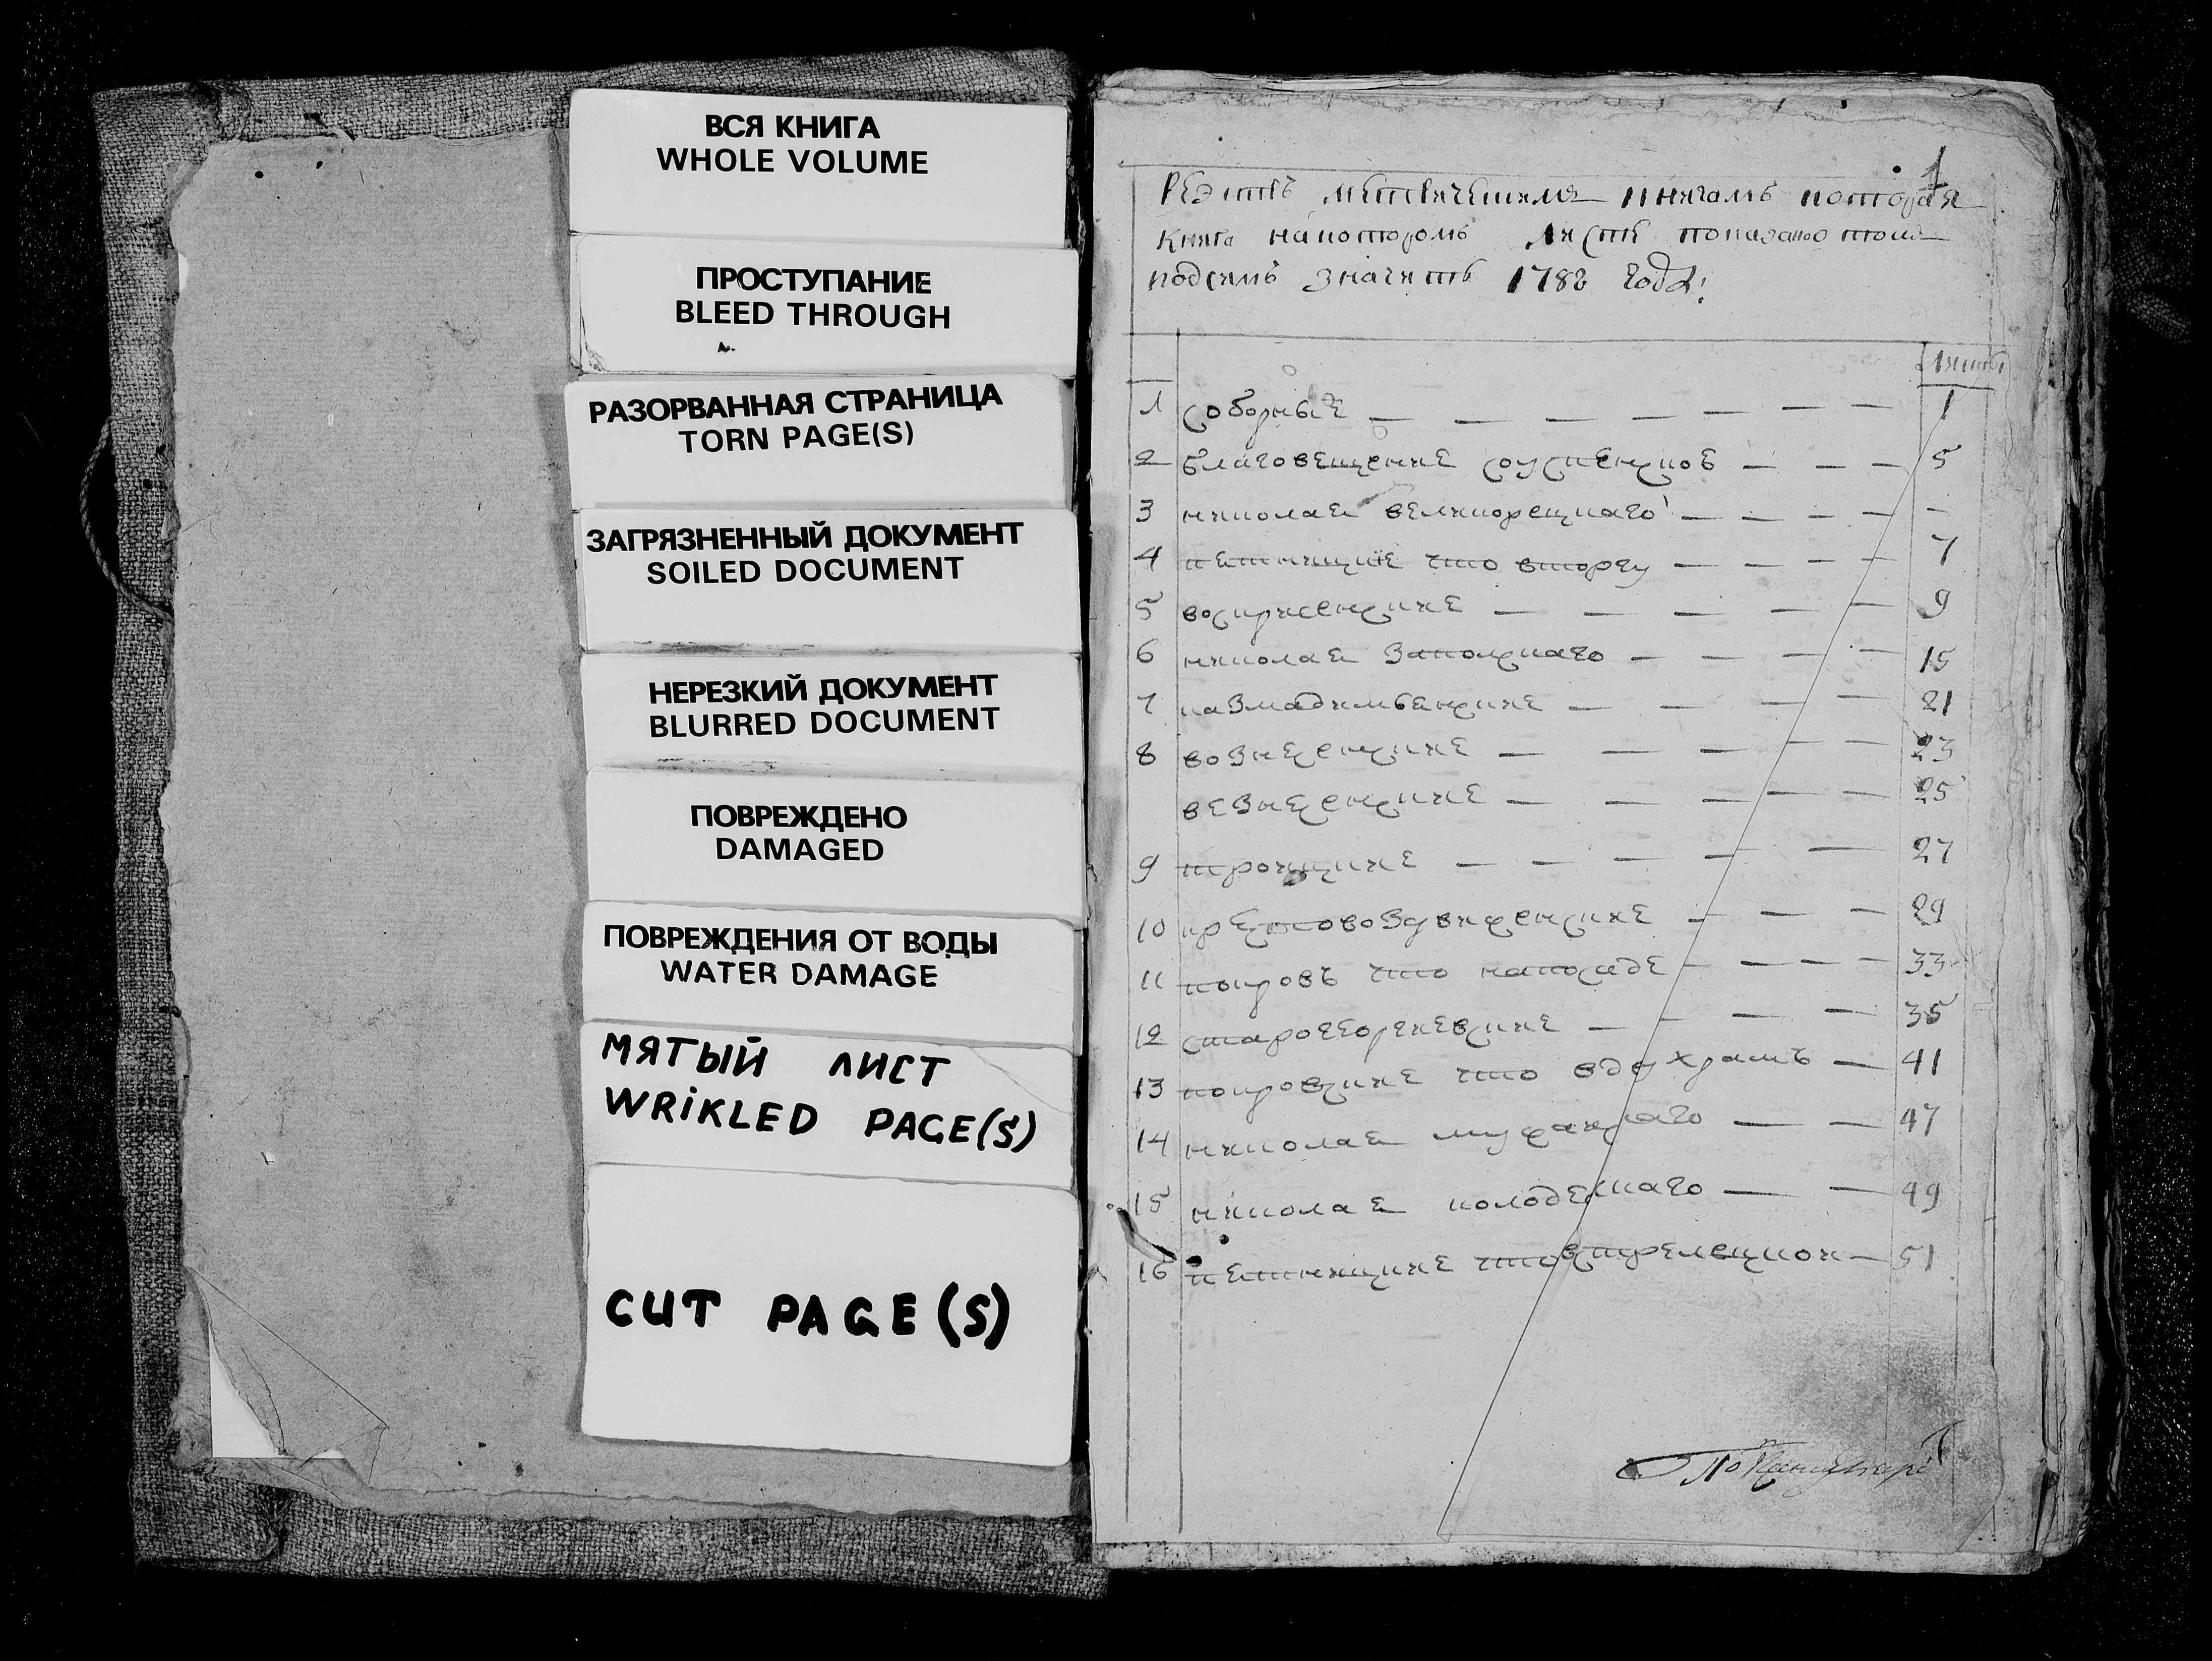 ВСЯ КНИГА
WHOLE VOLUME
ПРОСТУПАНИЕ
BLEED THROUGH
РАЗОРВАННАЯ СТРАНИЦА
TORN PAGE(S)
ЗАГРЯЗНЕННЫЙ ДОКУМЕНТ
SOILED DOCUMENT
НЕРЕЗКИЙ ДОКУМЕНТ
BLURRED DOCUMENT
ПОВРЕЖДЕНО
DAMAGED
ПОВРЕЖДЕНИЯ ОТ ВОДЫ
WATER DAMAGE
МЯТЫЙ ЛИСТ
WRiKLED PAGE(S)
CUT PAGE(S)
1
Реэстръ метрическимъ книгамъ которая
книга накоторомъ листе показанотомъ
подсимъ значитъ 1782 года:
листы
1 соборные 1
2 благовещение 5
3 николая великорецкаго -
4 петницкие что вторгу 7
5 воскрисенские 9
6 николая Запольскаго 15
7 казмадимьенские 21
8 вознесенские 23
вознесенские 25
9 троицкие 27
10 крестовоздвиженские 29
11 покровъ что напосаде 33
12 старогеоргиевские 35
13 покровские что вдву храмъ 41
14 николая 47
15 николая колодескаго 49
16 петницкие что 51